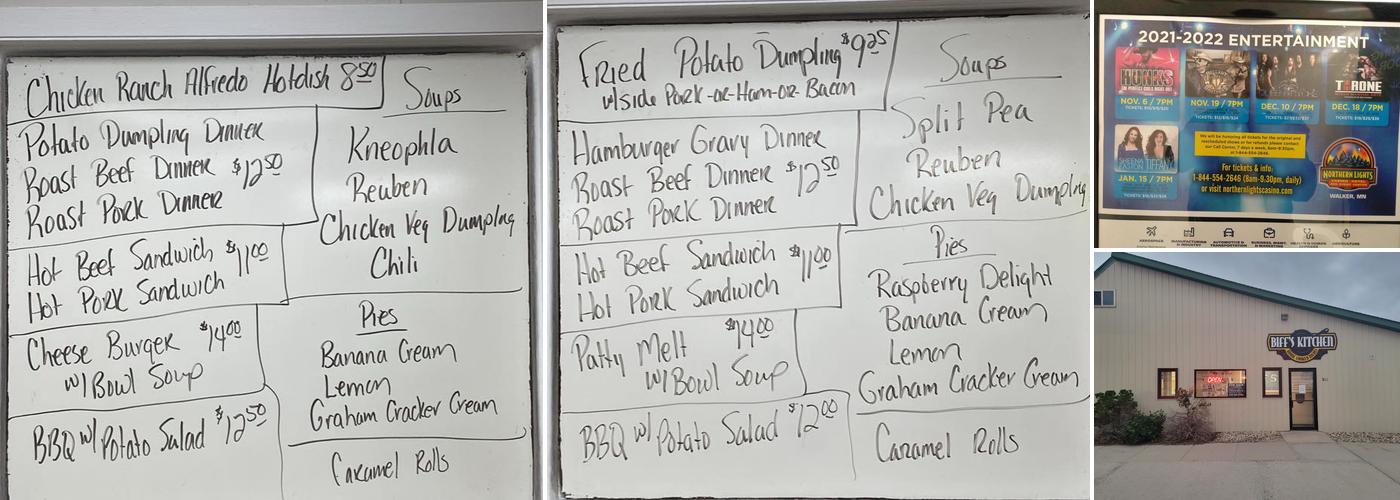 Chicken Ranch Alfredo Hotdish 850
Potato Dumpling Dinner
Roast Beef Dinner $12 50
Roast Pork Dinner
Hot Beef Sandwich $11 00
Hot Pork Sandwich
Cheese Burger $14 00
w/Bowl Soup
BBQ w/Potato Salad $12 50
Soups
Kneophla
Reuben
Chicken Veg Dumplng
Chili
Pies
Banana Cream
Lemon
Graham Cracker Cream
Caramel Rolls
Fried Potato Dumpling $9 25
w/side Pork-or-Ham-or Bacon
Hamburger Gravy Dinner
Roast Beef Dinner $12 50
Roast Pork Dinner
Hot Beef Sandwich $11 00
Hot Pork Sandwich
Patty Melt $14 00
w/Bowl Soup
BBQ w/Potato Salad $12 00
Soups
Split Pea
Reuben
Chicken Veg Dumplng
Pies
Raspberry Delight
Banana Cream
Lemon
Graham Cracker Cream
Caramel Rolls
2021-2022 ENTERTAINMENT
HUNKS
THRONE
NOV. 6 / 7PM
NOV. 19 / 7PM
DEC. 10 / 7PM
DEC. 18 / 7PM
SHEENA EASTON TIFFANY
JAN. 15 / 7PM
We will be honoring all tickets for the original and
rescheduled shows or for refunds please contact
our Call Center, 7 days a week, 8am-9:30pm,
at 1-844-554-2646.
For tickets & info:
1-844-554-2646 (8am-9:30pm, daily)
or visit northernlightscasino.com
NORTHERN LIGHTS
WALKER, MN
BIFF'S KITCHEN
OPEN